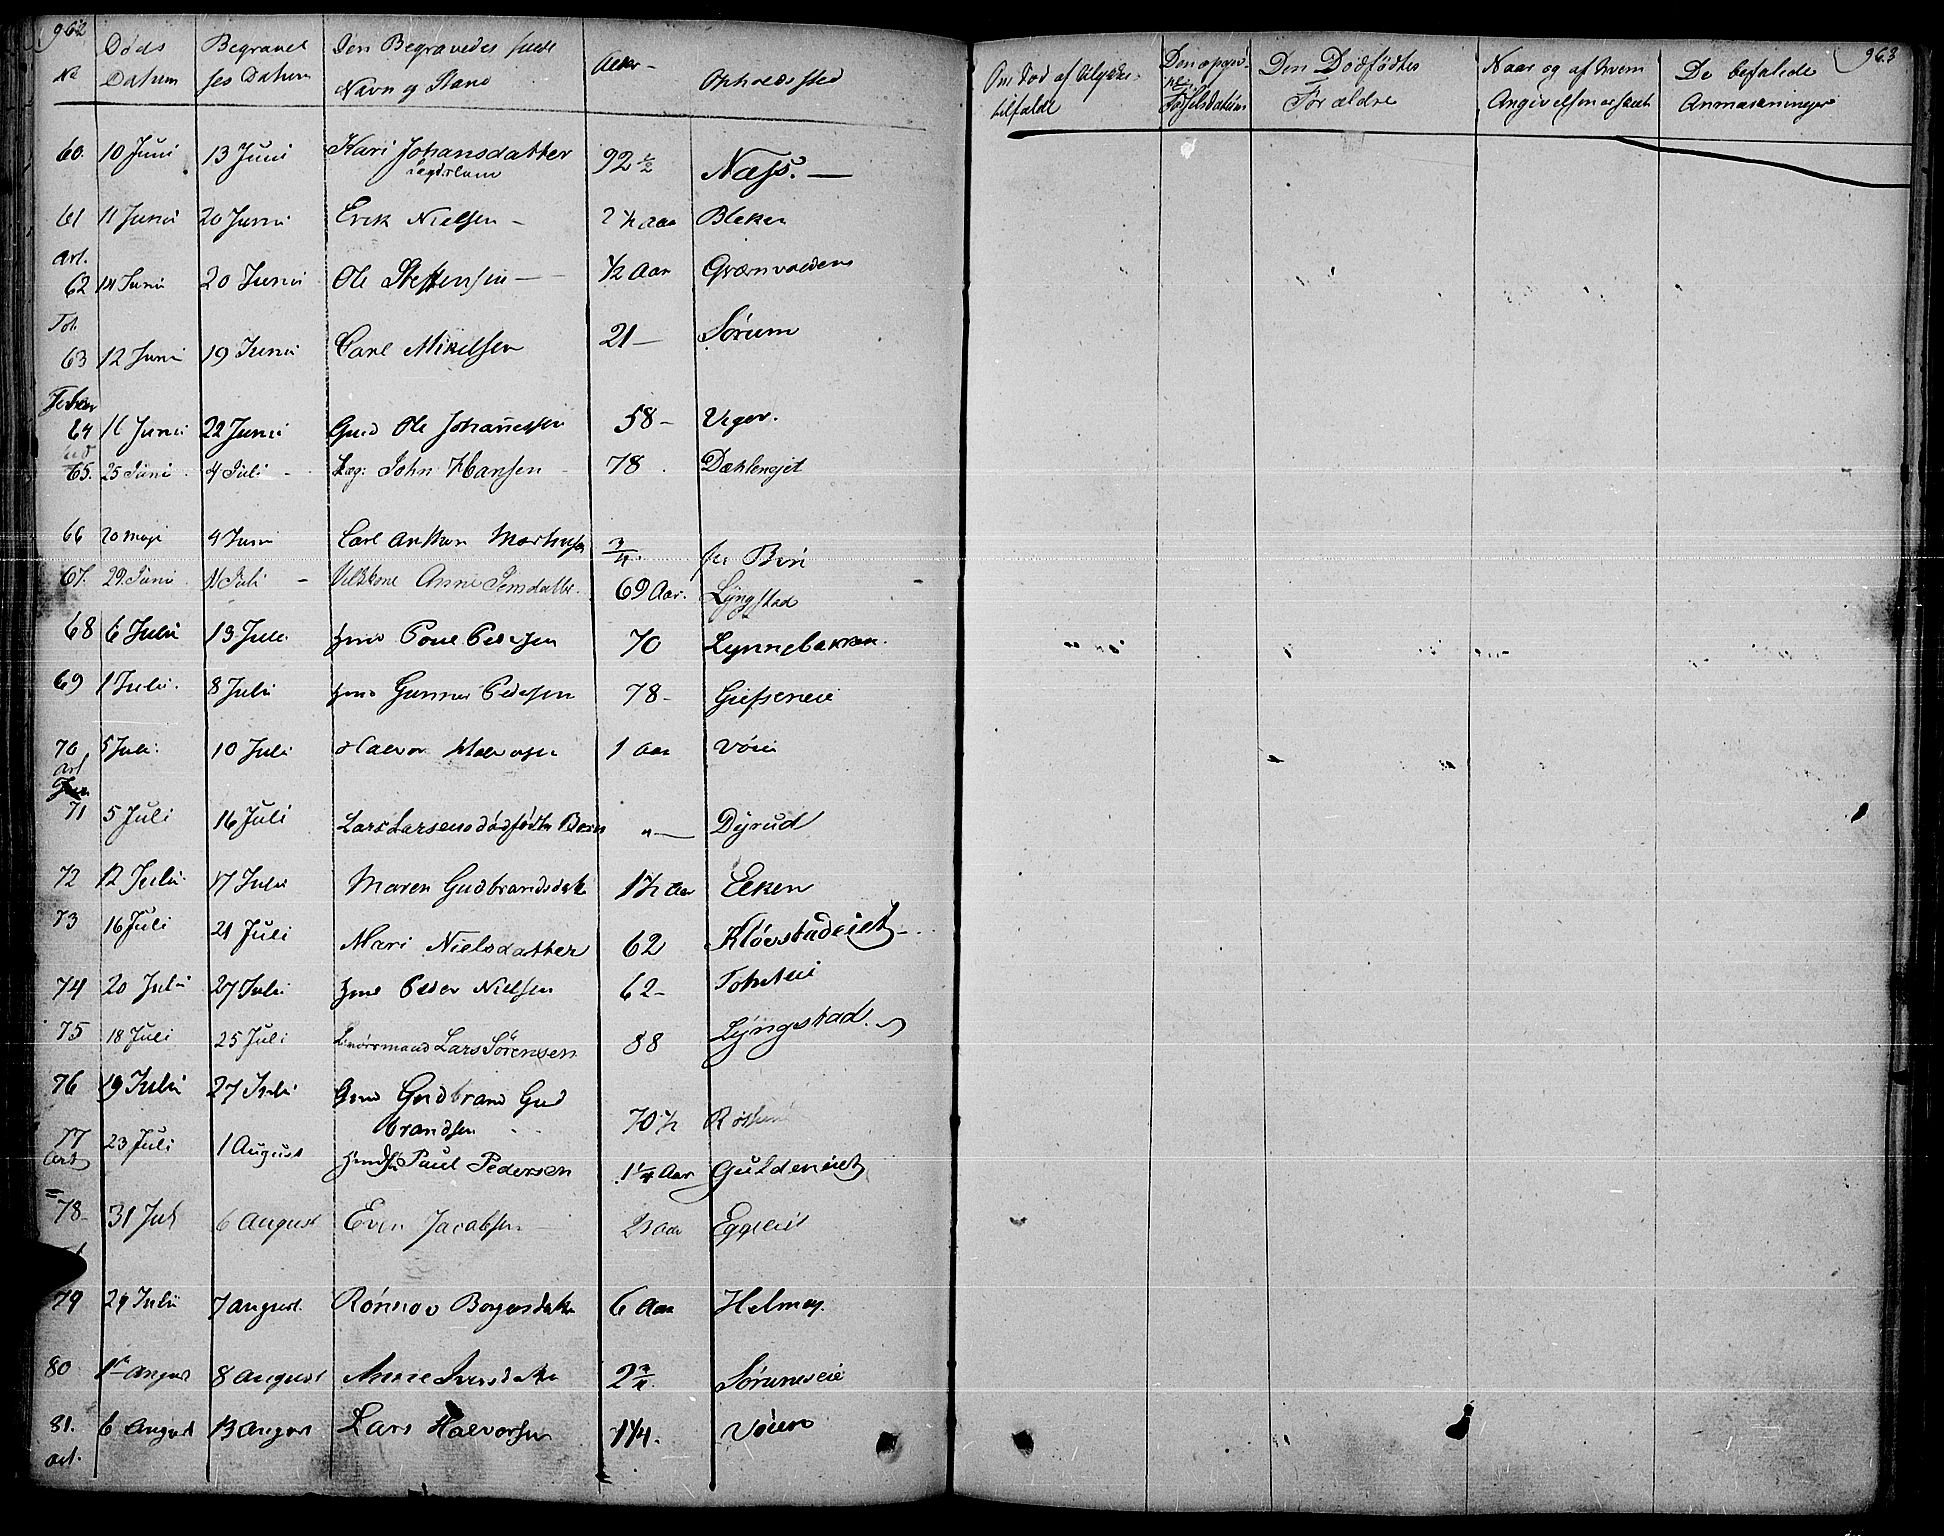 962
No
Døds Datum
Begravel ses Datum
Den Begravedes fulde Navn og Stand
Alder
Opholdssted
60. 10 Juni 13 Juni Kari Johansdatter 92 1/2 Næss. —
Lægdslem
61 11 Juni 20 Juni Erik Nielsen - 2 1/2 Aar Bleken
Art.
62 14 Juni 20 Juni Ole Steffensen - 1/2 Aar Grænvolden
63 12 Juni 19 Juni Carl Mikelsen 21 — Sørum
64 Juni 22 Juni Ole Johannessen 58 - Uger.
65. 25 Juni 4 Juli - Læg: John Hansen - 78. Dæhlenejet
66 20 Maji 4 Juni Carl Anthon 3/4. fra Biri
67. 29. Juni 11 Juli - Anne Jensdatter. 69 Aar. Lyngstad
68 6 Juli 13 Juli Poul Pedersen 70 Lynnebakken.
69 1 Juli. 8 Juli Gunner Pedersen 78 - Giefseneie
70 5 Juli 10 Juli Halvor Halvorsen 1 Aar Vøien
Art
71 5 Juli 16 Juli Lars Larsens dødfødte Barn " — Dyrud
72 12 Juli 17 Juli Maren Gudbrandsdatter 1 1/2 Aar Eeken
73 16 Juli 21 Juli Mari Nielsdatter 62 Kløvstadeiet
74 20 Juli 27 Juli Peder Nielsen 62 - Tomteei
75 18 Juli 25 Juli Lars Sørensen 88 Lyngstad.
76 19 Juli 27 Juli Gmd Gudbrand Gud
brandsen 70 1/2
77 23 Juli 1 August Paul Pedersen 1 1/4 Aar Guldeneiet
Art
78 - 31 Juli 6 August Even Jacobsen - Aar Eggeeie
79 29 Juli 7 August. Rønnov 6 Aar Helmey.
80 1 August 8 August Anne Iversdatter 2 3/4. Sørumseie
81. 6 August 13 August Lars Halvorsen 1 1/4. Vøien
Art.
963
Om Død af Ulykkes-
tilfælde
Den opgiv-
ne
Fødselsdatum
Den Dødfødtes
Forældre
Naar og af hvem
Angivelsen er skeet
De befalede
Anmærkninger